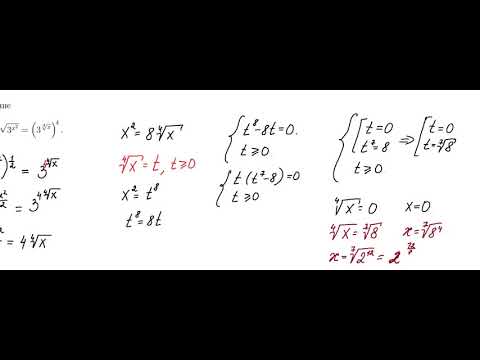 ние
√3^{x²} = (3^{∜x})^4.
)^{1/2} = 3^{4∜x}
x²/2 = 3^{4∜x}
= 4∜x
x² = 8∜x
∜x = t, t ≥ 0
x² = t⁸
t⁸ = 8t
{ t⁸ - 8t = 0.
t ≥ 0
{ t(t⁷ - 8) = 0
t ≥ 0
{ [ t = 0
t⁷ = 8
t ≥ 0
⇒ [ t = 0
t = ⁷√8
∜x = 0 x = 0
∜x = ⁷√8 x = ⁷√8⁴
x = ⁷√2¹² = 2^{12/7}